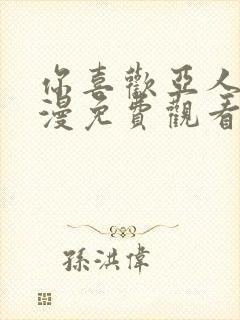 你喜歡亞人
漫免費觀看
孫洪偉